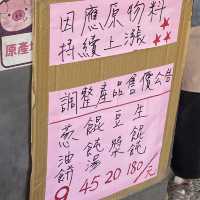 因應原物料
持續上漲
調整產品售價公告
蔥油餅 9
餛飩湯 45
豆漿 20
生餛飩 180/元
原產地